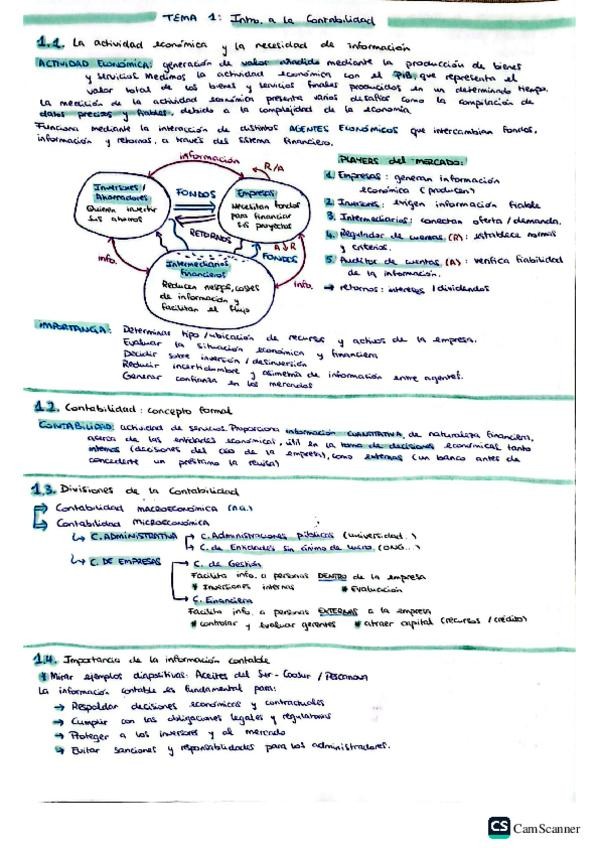 TEMA 1: Intro. a la Contabilidad
1.1. La actividad económica y la necesidad de información
ACTIVIDAD ECONÓMICA: generación de valor añadido mediante la producción de bienes
y servicios. Medimos la actividad económica con el PIB, que representa el
valor total de los bienes y servicios finales producidos en un determinado tiempo.
La medición de la actividad económica presenta varios desafíos como la compilación de
datos precisos y fiables, debido a la complejidad de la economía.
Funciona mediante la interacción de distintos AGENTES ECONÓMICOS que intercambian fondos,
información y retornos, a través del sistema financiero.
información
R/A
Inversores /
Ahorradores
Quieren invertir
sus ahorros
FONDOS
RETORNOS
Empresas
Necesitan fondos
para financiar
sus proyectos
A R
FONDOS
Info.
Intermediarios
financieros
Reducen riesgos, costes
de información y
facilitan el flujo
Info.
PLAYERS del MERCADO:
1. Empresas: generan información
económica (producen)
2. Inversores: exigen información fiable
3. Intermediarios: conectan oferta / demanda.
4. Regulador de cuentas (R): establece normas
y criterios.
5. Auditor de cuentas (A): verifica fiabilidad
de la información.
→ retornos: intereses / dividendos
IMPORTANCIA: Determinar tipo / ubicación de recursos y activos de la empresa.
Evaluar la situación económica y financiera
Decidir sobre inversión / desinversión
Reducir incertidumbre y asimetría de información entre agentes.
Generar confianza en los mercados
1.2. Contabilidad: concepto formal
CONTABILIDAD: actividad de servicios. Proporciona información CUANTITATIVA, de naturaleza financiera,
acerca de las entidades económicas, útil en la toma de decisiones económicas, tanto
internas (decisiones del CEO de la empresa), como externas (un banco antes de
concederte un préstamo la revisa)
1.3. Divisiones de la contabilidad
Contabilidad MACROECONÓMICA
Contabilidad MICROECONÓMICA
↳ C. ADMINISTRATIVA → C. Administraciones públicas (universidad..)
→ C. de Entidades sin ánimo de lucro (ONG...)
↳ C. DE EMPRESAS → C. de Gestión
Facilita info. a personas DENTRO de la empresa
* Inversiones internas * Evaluación
→ C. Financiera
Facilita info. a personas EXTERNAS a la empresa
* controlar y evaluar gerentes * atraer capital (recursos / crédito)
1.4. Importancia de la información contable
* Mirar ejemplos diapositivas: Aceites del Sur - Coosur / Pescanova
La información contable es fundamental para:
→ Respaldar decisiones económicas y contractuales
→ Cumplir con las obligaciones legales y regulatorias
→ Proteger a los inversores y al mercado
→ Evitar sanciones y responsabilidades para los administradores.
CS CamScanner